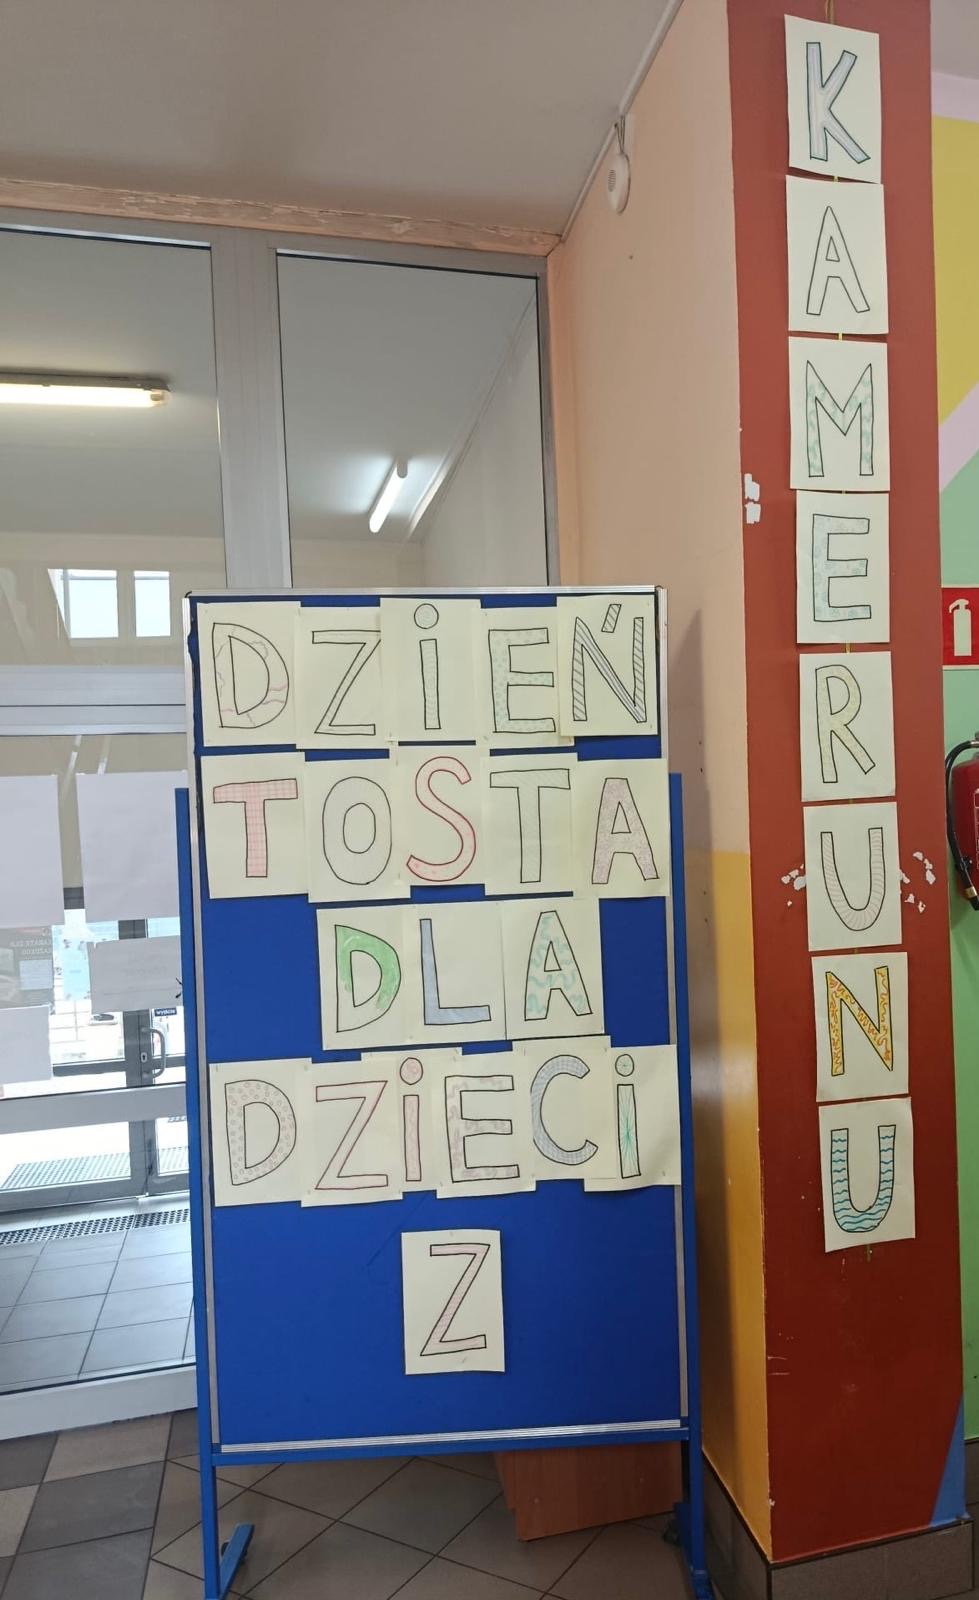 DZiEŃ
TOSTA
DLA
DZiECi
Z
KAMERUNU